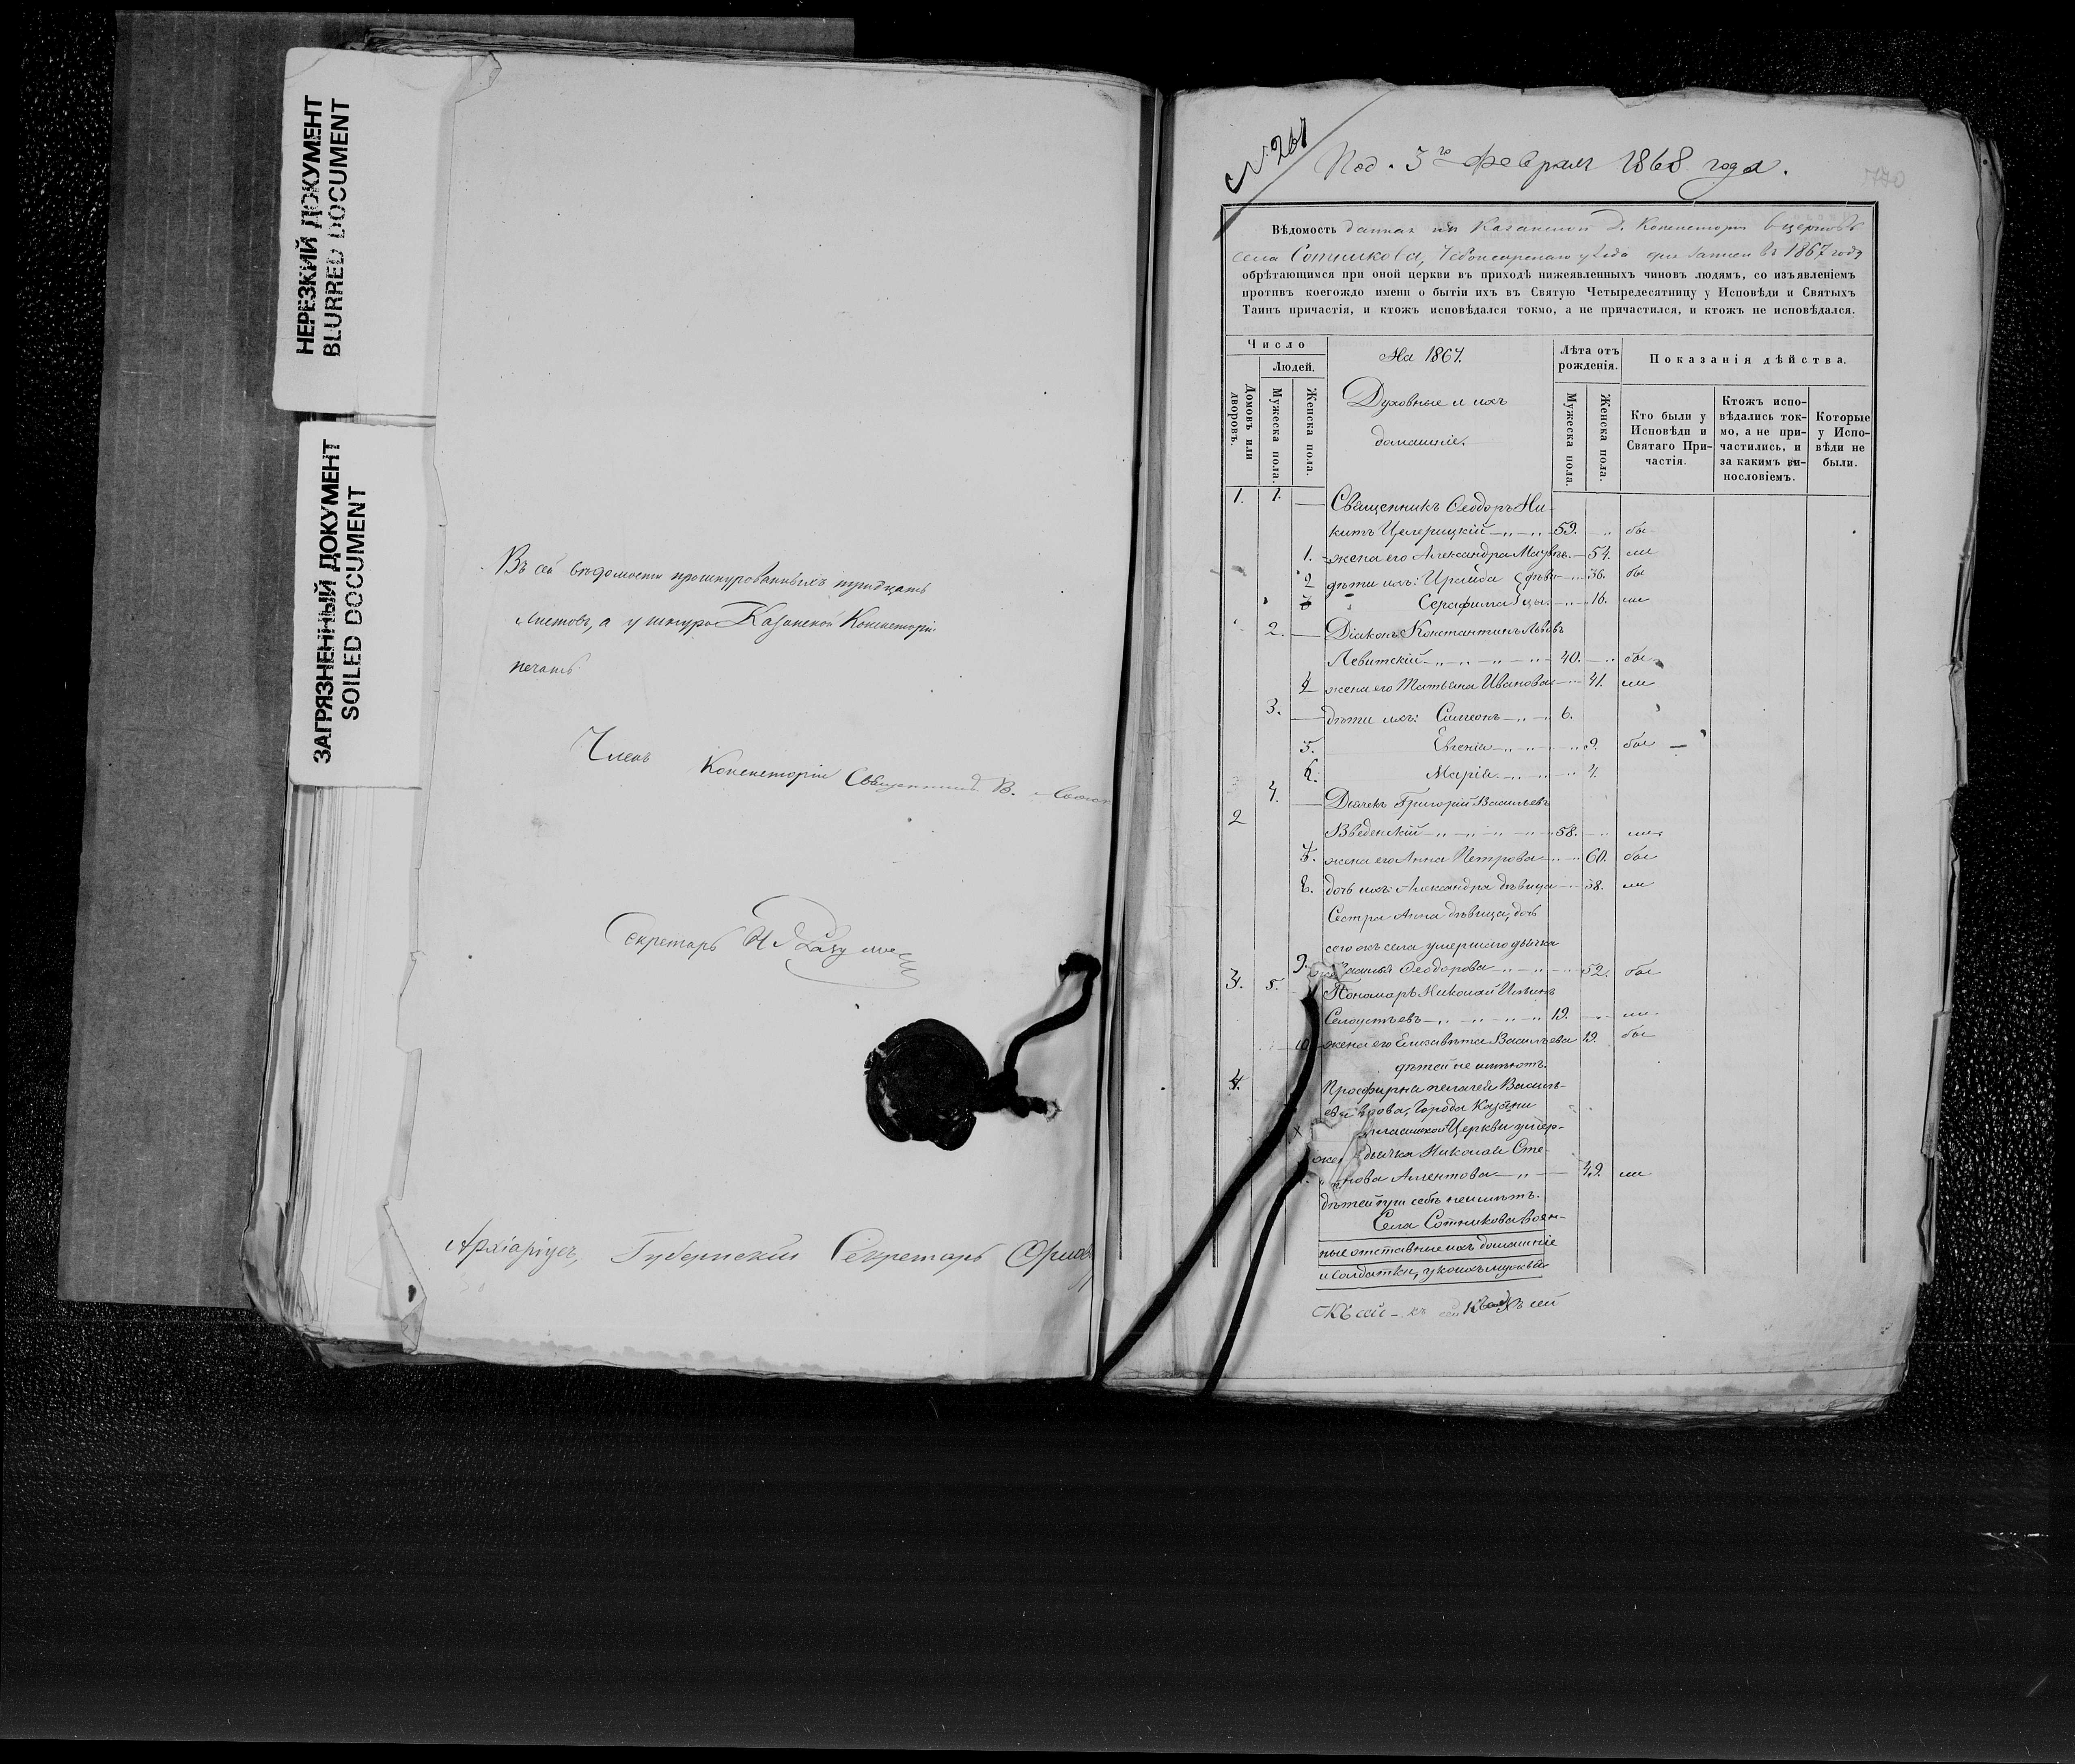 НЕРЕЗКИЙ ДОКУМЕНТ
BLURRED DOCUMENT
ЗАГРЯЗНЕННЫЙ ДОКУМЕНТ
SOILED DOCUMENT
Въ сей вѣдомости прошнурованныхъ тридцать
листовъ, а у шнура Казанской Консисторіи
печать
Членъ Консисторіи Священникъ В.
Секретарь И
Архіаріусъ, Губернскій Секретарь
№ 267
Под. 3го Февраля 1868 года.
Вѣдомость данная изъ Казанской Д. Консисторіи въ церковь
села Сотникова, Чебоксарскаго уѣзда для записи въ 1867 году
обрѣтающимся при оной церкви въ приходѣ нижеявленныхъ чиновъ людямъ, со изъявленіемъ
противъ коегождо имени о бытіи ихъ въ Святую Четыредесятницу у Исповѣди и Святыхъ
Таинъ причастія, и ктожъ исповѣдался токмо, а не причастился, и ктожъ не исповѣдался.
Число
Людей.
Домовъ или дворовъ.
Мужеска пола.
Женска пола.
На 1867.
Духовные и ихъ
домашніе.
Лѣта отъ рожденія.
Мужеска пола.
Женска пола.
Показанія дѣйства.
Кто были у Исповѣди и Святаго При-частія.
Ктожъ испо-вѣдались ток-мо, а не при-частились, и за какимъ ви-нословіемъ.
Которые у Испо-вѣди не были.
1. 1. Священникъ Ѳеодоръ Ни-
китъ 59. бы-
1. жена его Александра 54. ли
2 дѣти ихъ: Ираида дѣви- 36. бы
3 Серафима цы. 16. ли
2. Діаконъ Константинъ Львовъ
Левитскій 40. бы-
4 жена его Татьяна Иванова 41. ли
3. дѣти ихъ: Симеонъ 6.
5. Евгенія 9. бы
6. Марія 4.
4. Дьячекъ Григорій Васильевъ
2
Введенскій 58. ли
7. жена его Анна Петрова 60. бы
8. дочь ихъ: Александра дѣвица 38. ли
Сестра Анна дѣвица, дочь
сего жъ села умершаго дьячка
9. Ѳеодорова 52. бы
3. 5. Пономарь Николай
19. ли
10 жена его Елизавета Васильева 19. бы
дѣтей не имѣютъ.
4. Просфирня Пелагея Василь-
города Казани
Церкви умер-
дьячка Николая Сте-
49. ли
дѣтей при себѣ неимѣтъ.
Села Сотникова воен-
ные отставные ихъ домашніе
и солдатки, у коихъ мужья